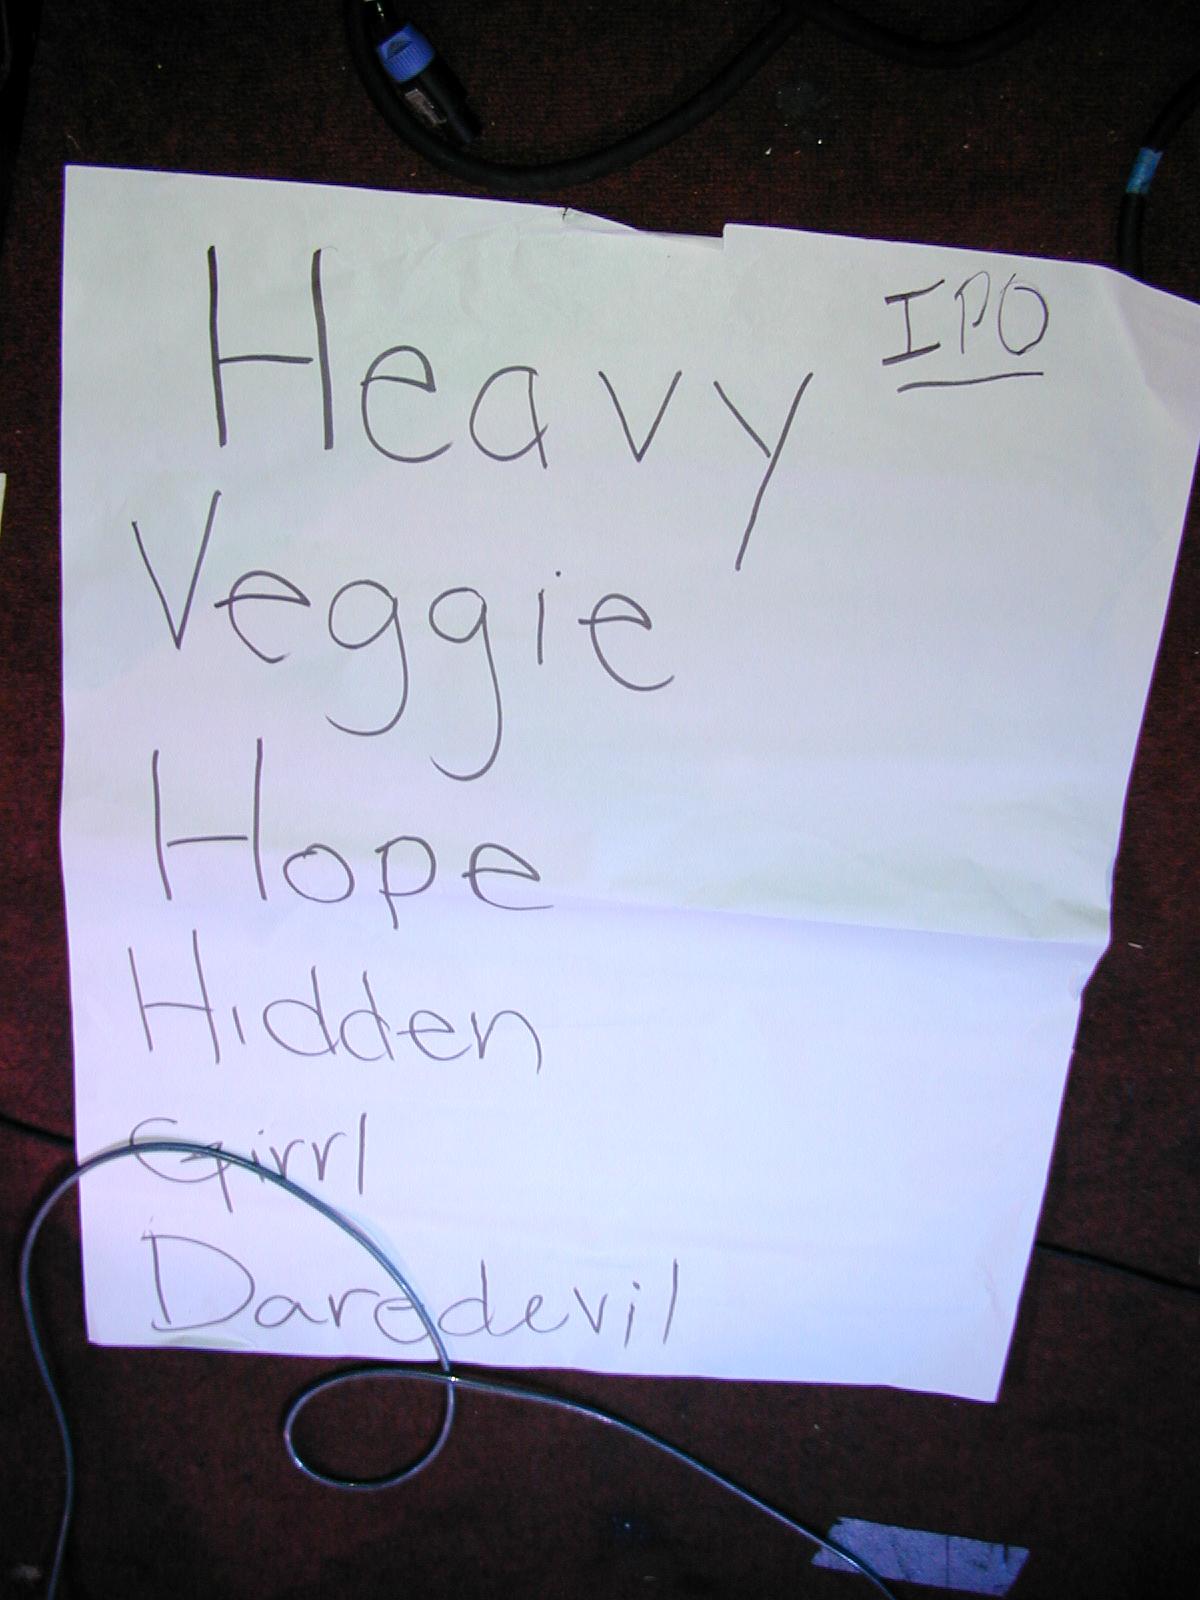 IPO
Heavy
Veggie
Hope
Hidden
Girrl
Daredevil